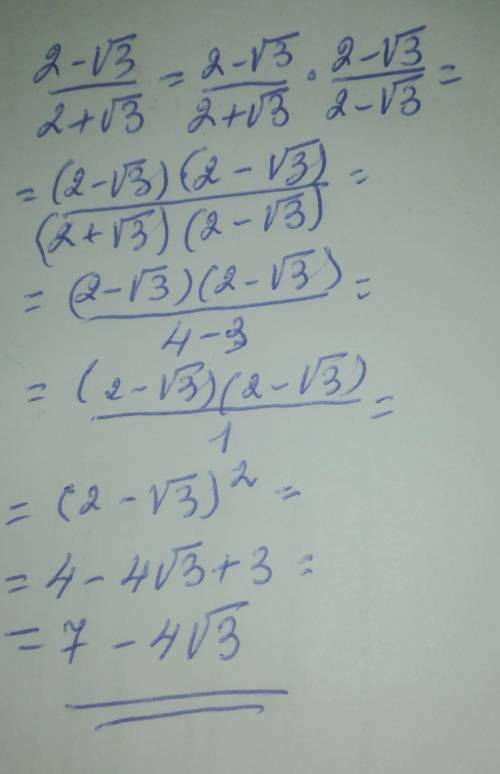 (2-√3)/(2+√3) = (2-√3)/(2+√3) · (2-√3)/(2-√3) =
= ((2-√3)(2-√3))/((2+√3)(2-√3)) =
= ((2-√3)(2-√3))/(4-3) =
= ((2-√3)(2-√3))/1 =
= (2-√3)² =
= 4-4√3+3 =
= 7-4√3